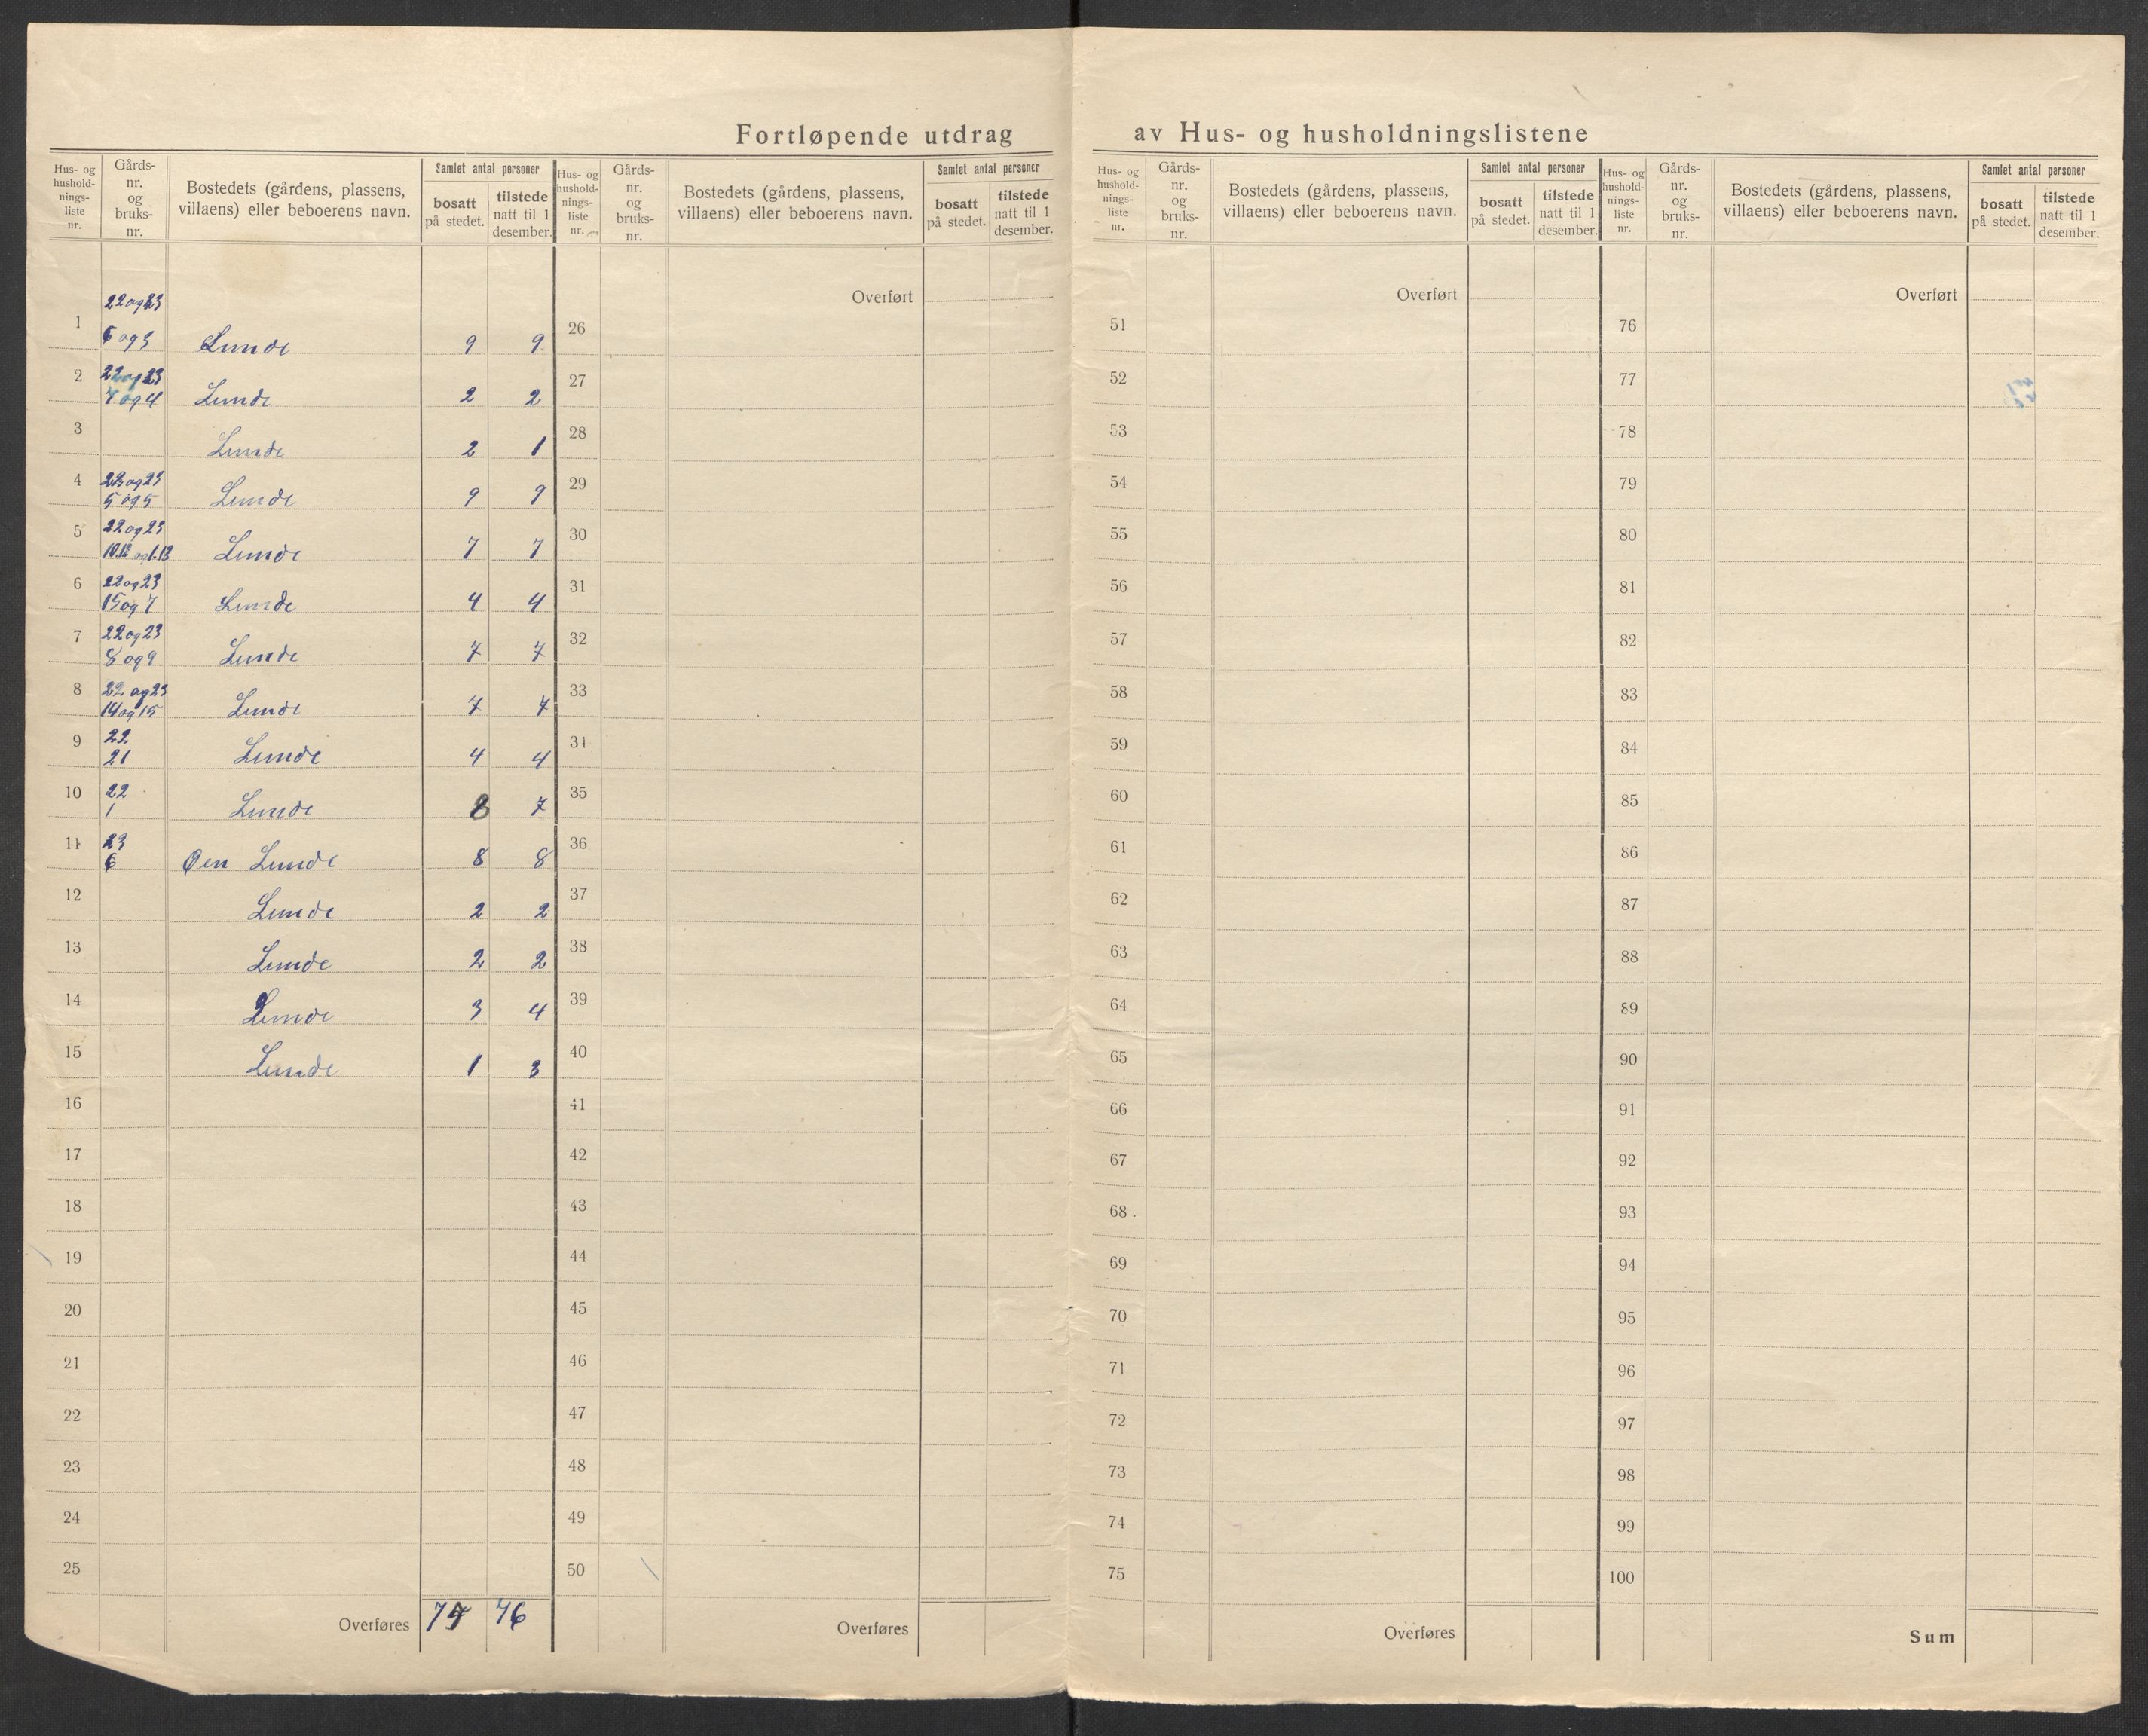 Fortløpende utdrag av Hus- og husholdningslistene
Hus- og hushold-nings-liste nr. | Gårds-nr. og bruks-nr. | Bostedets (gårdens, plassens, villaens) eller beboerens navn. | Samlet antal personer | bosatt på stedet. | tilstede natt til 1 desember.
1 | 22 og 23 6 og 3 | Lunde | 9 | 9
2 | 22 og 23 4 og 4 | Lunde | 2 | 2
3 | Lunde | 2 | 1
4 | 22 og 23 5 og 5 | Lunde | 9 | 9
5 | 22 og 23 10.12 og 1.13 | Lunde | 7 | 7
6 | 22 og 23 15 og 7 | Lunde | 4 | 4
7 | 22 og 23 8 og 9 | Lunde | 7 | 7
8 | 22 og 23 14 og 15 | Lunde | 7 | 7
9 | 22 21 | Lunde | 4 | 4
10 | 22 1 | Lunde | 8 | 7
11 | 23 6 | Øen Lunde | 8 | 8
12 | Lunde | 2 | 2
13 | Lunde | 2 | 2
14 | Lunde | 3 | 4
15 | Lunde | 1 | 3
16
17
18
19
20
21
22
23
24
25
Overføres | 75 | 76
Hus- og hushold-nings-liste nr. | Gårds-nr. og bruks-nr. | Bostedets (gårdens, plassens, villaens) eller beboerens navn. | Samlet antal personer | bosatt på stedet. | tilstede natt til 1 desember.
Overført
26
27
28
29
30
31
32
33
34
35
36
37
38
39
40
41
42
43
44
45
46
47
48
49
50
Overføres
Hus- og hushold-nings-liste nr. | Gårds-nr. og bruks-nr. | Bostedets (gårdens, plassens, villaens) eller beboerens navn. | Samlet antal personer | bosatt på stedet. | tilstede natt til 1 desember.
Overført
51
52
53
54
55
56
57
58
59
60
61
62
63
64
65
66
67
68
69
70
71
72
73
74
75
Overføres
Hus- og hushold-nings-liste nr. | Gårds-nr. og bruks-nr. | Bostedets (gårdens, plassens, villaens) eller beboerens navn. | Samlet antal personer | bosatt på stedet. | tilstede natt til 1 desember.
Overført
76
77
78
79
80
81
82
83
84
85
86
87
88
89
90
91
92
93
94
95
96
97
98
99
100
Sum